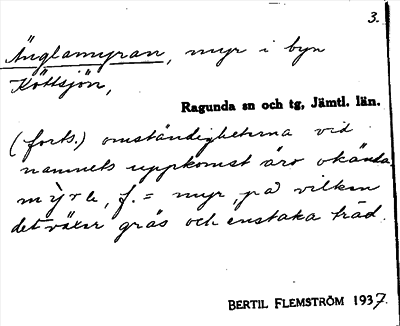 3.
Änglamyran, myr i byn
Köttsjön,
Ragunda sn och tg, Jämtl. län.
(forts.) omständigheterna vid
namnets uppkomst äro okända.
mỳrₑ, f. = myr, på vilken
det växer gräs och enstaka träd.
BERTIL FLEMSTRÖM 1937.